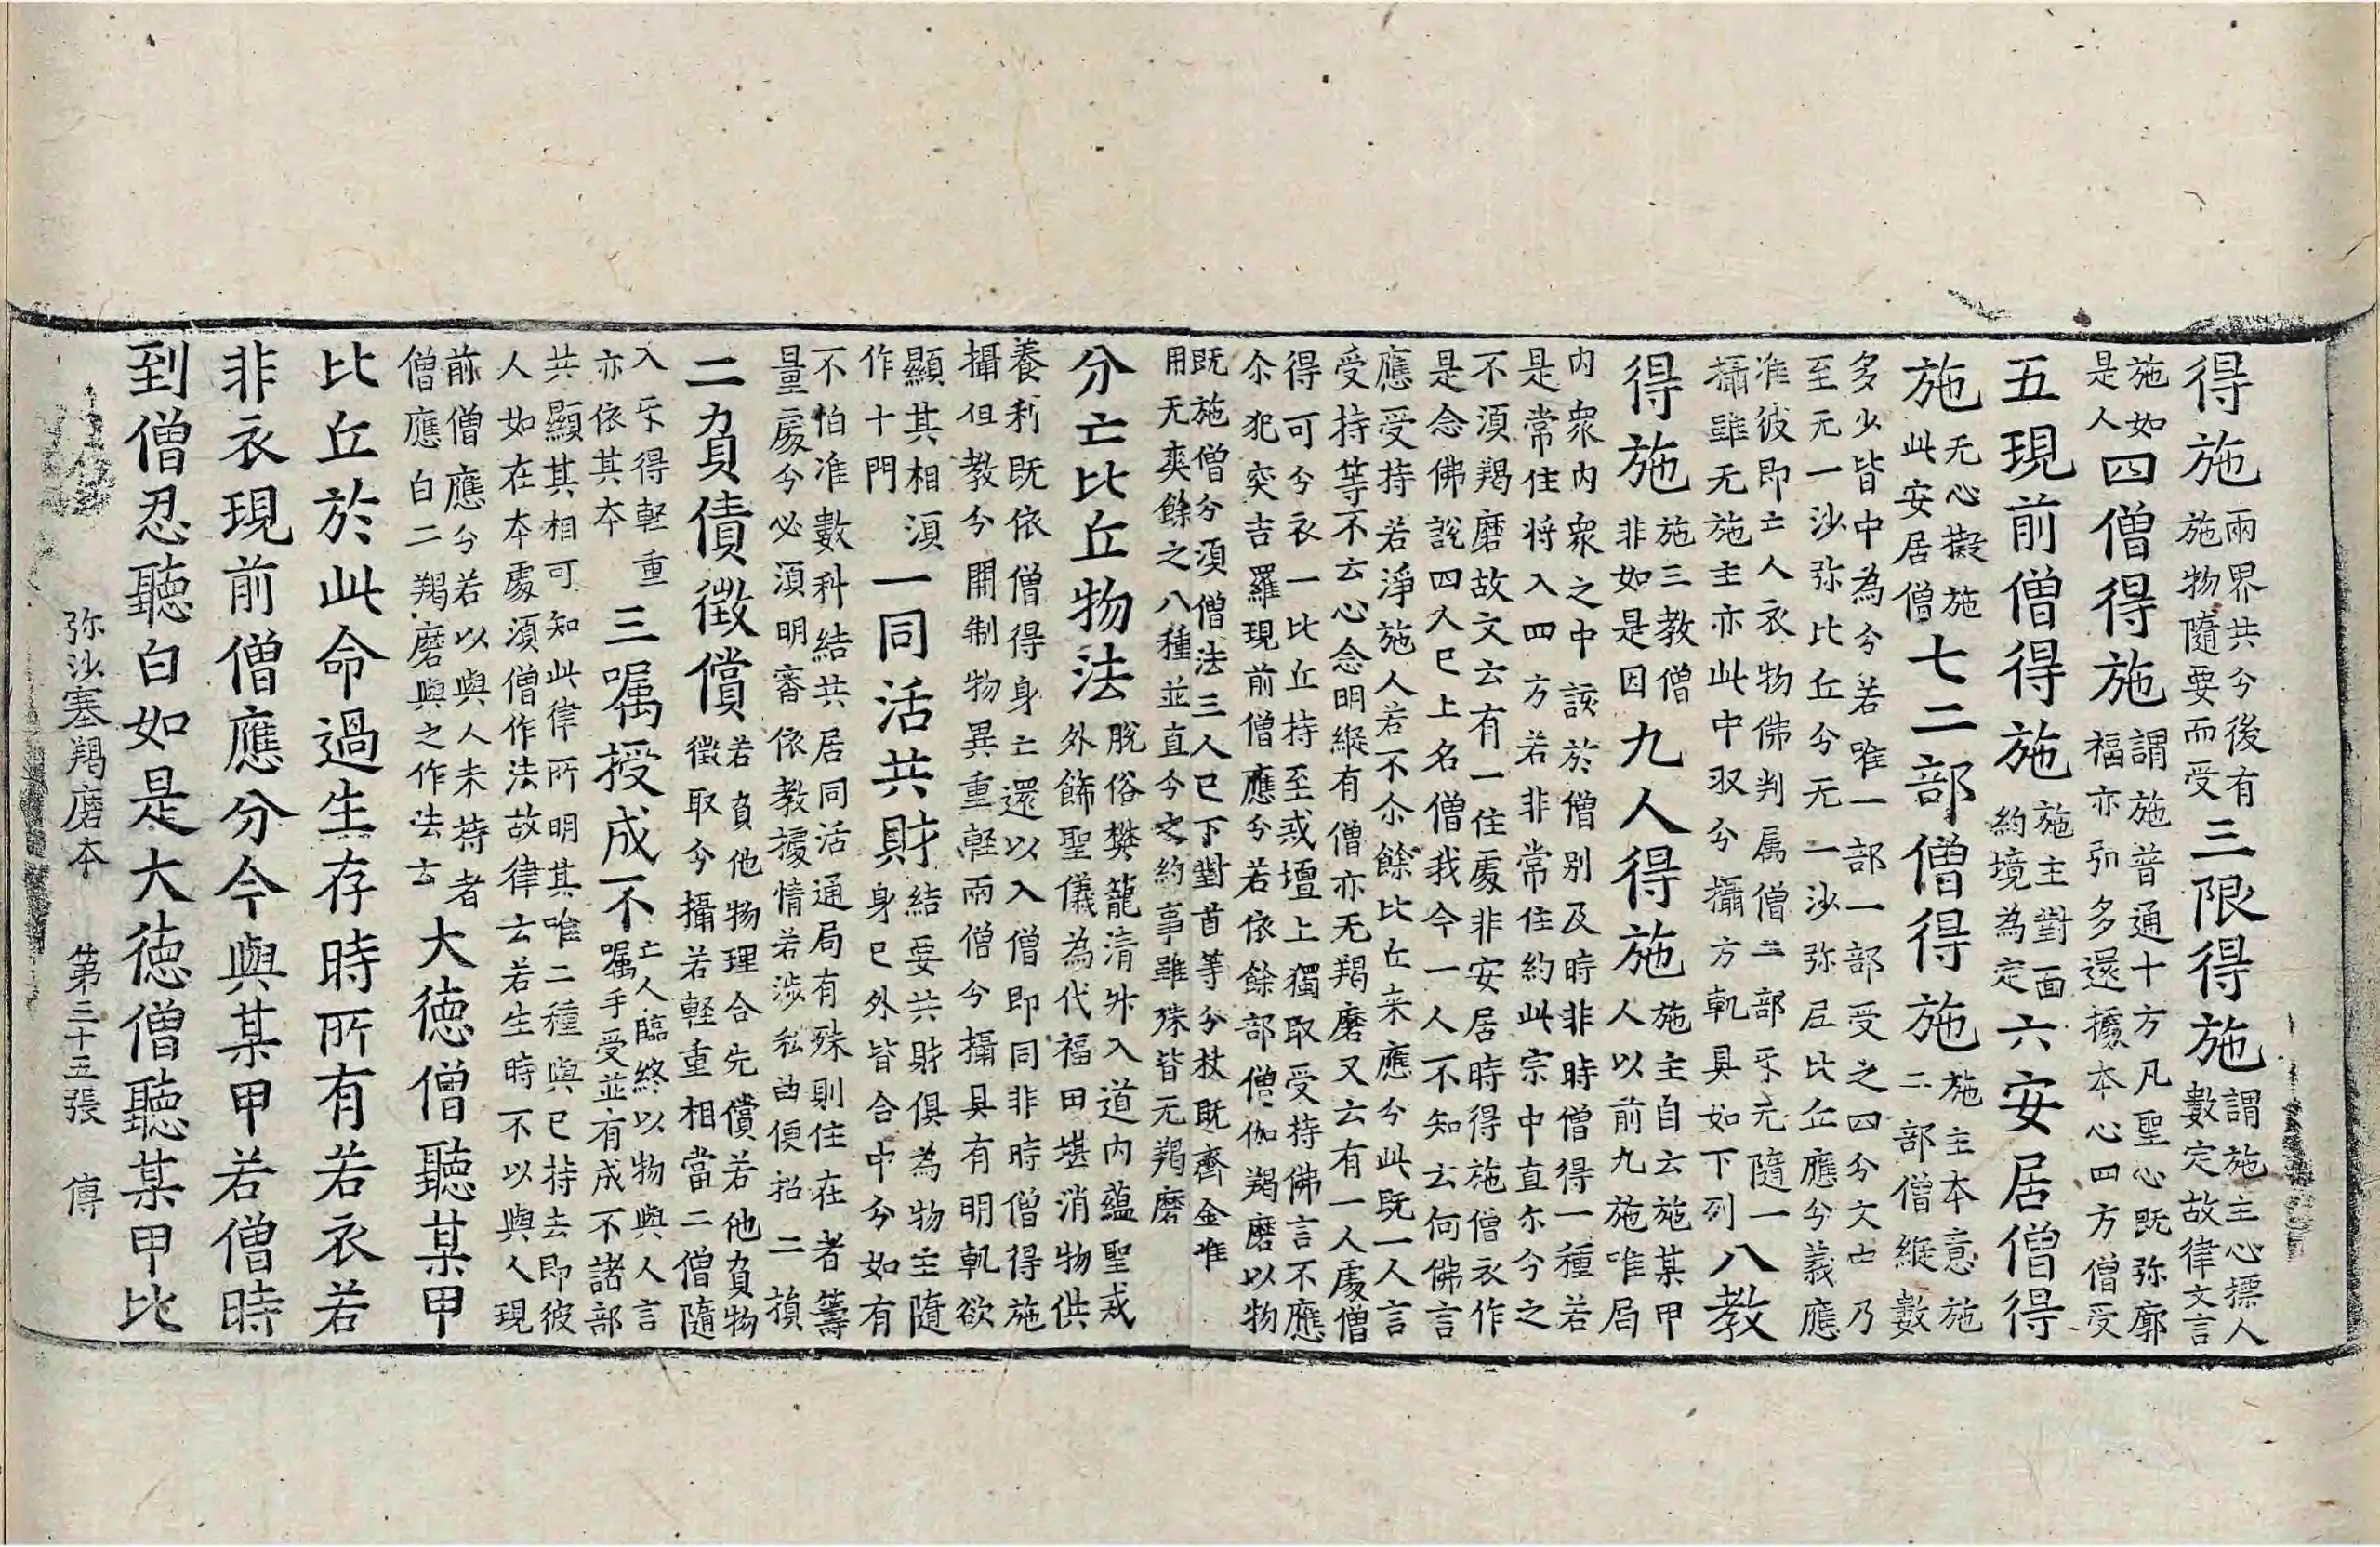 得施兩界共分後有施物隨要而受三限得施謂施主心摽人數定故律文言
施如是人四僧得施謂施普通十方凡聖心既弥廓福亦弘多還據本心四方僧受
五現前僧得施施主對面約境為定六安居僧得
施无心擬施此安居僧七二部僧得施施主本意施二部僧縱數
多少皆中為分若唯一部一部受之四分文云乃至无一沙弥比丘分无一沙弥尼比丘應分義應
准彼即亡人衣物佛判属僧二部互无隨一攝雖无施主亦此中収分攝方軌具如下列八教
得施施三教僧非如是因九人得施施主自云施某甲人以前九施唯局
内眾内眾之中該於僧別及時非時僧得一種若是常住将入四方若非常住約此宗中直尓今之
不湏羯磨故文云有一住處非安居時得施僧衣作是念佛說四人已上名僧我今一人不知云何佛言
應受持若淨施人若不尒餘比丘来應分此既一人言受持等不云心念明縱有僧亦无羯磨又云有一人處僧
得可分衣一比丘持至戒壇上獨取受持佛言不應尒犯突吉羅現前僧應分若依餘部僧伽羯磨以物
既施僧分湏僧法三人已下對首等分杖既齊金唯用无爽餘之八種並直今之約事雖殊皆无羯磨
分亡比丘物法脫俗樊籠清升入道内蘊聖戒外餙聖儀為代福田堪消物供
養利既依僧得身亡還以入僧即同非時僧得施攝但教分開制物異重輕兩僧分攝具有明軌欲
顯其相湏作十門一同活共財結要共財俱為物主隨身已外皆合中分如有
不怕准數科結共居同活通局有殊則住在者籌量處分必湏明審依教據情若涉私曲便招二損
二負債徵償若負他物理合先償若他負物徵取分攝若輕重相當二僧隨
入互得輕重亦依其本三囑授成不亡人臨終以物與人言囑手受並有成不諸部
共顯其相可知此律所明其唯二種與已持去即彼人如在本處湏僧作法故律云若生時不以與人現
前僧應分若以與人未持者僧應白二羯磨與之作法云大徳僧聽某甲
比丘於此命過生存時所有若衣若
非衣現前僧應分今與某甲若僧時
到僧忍聽白如是大徳僧聽某甲比
弥沙塞羯磨本　第三十五張　傳